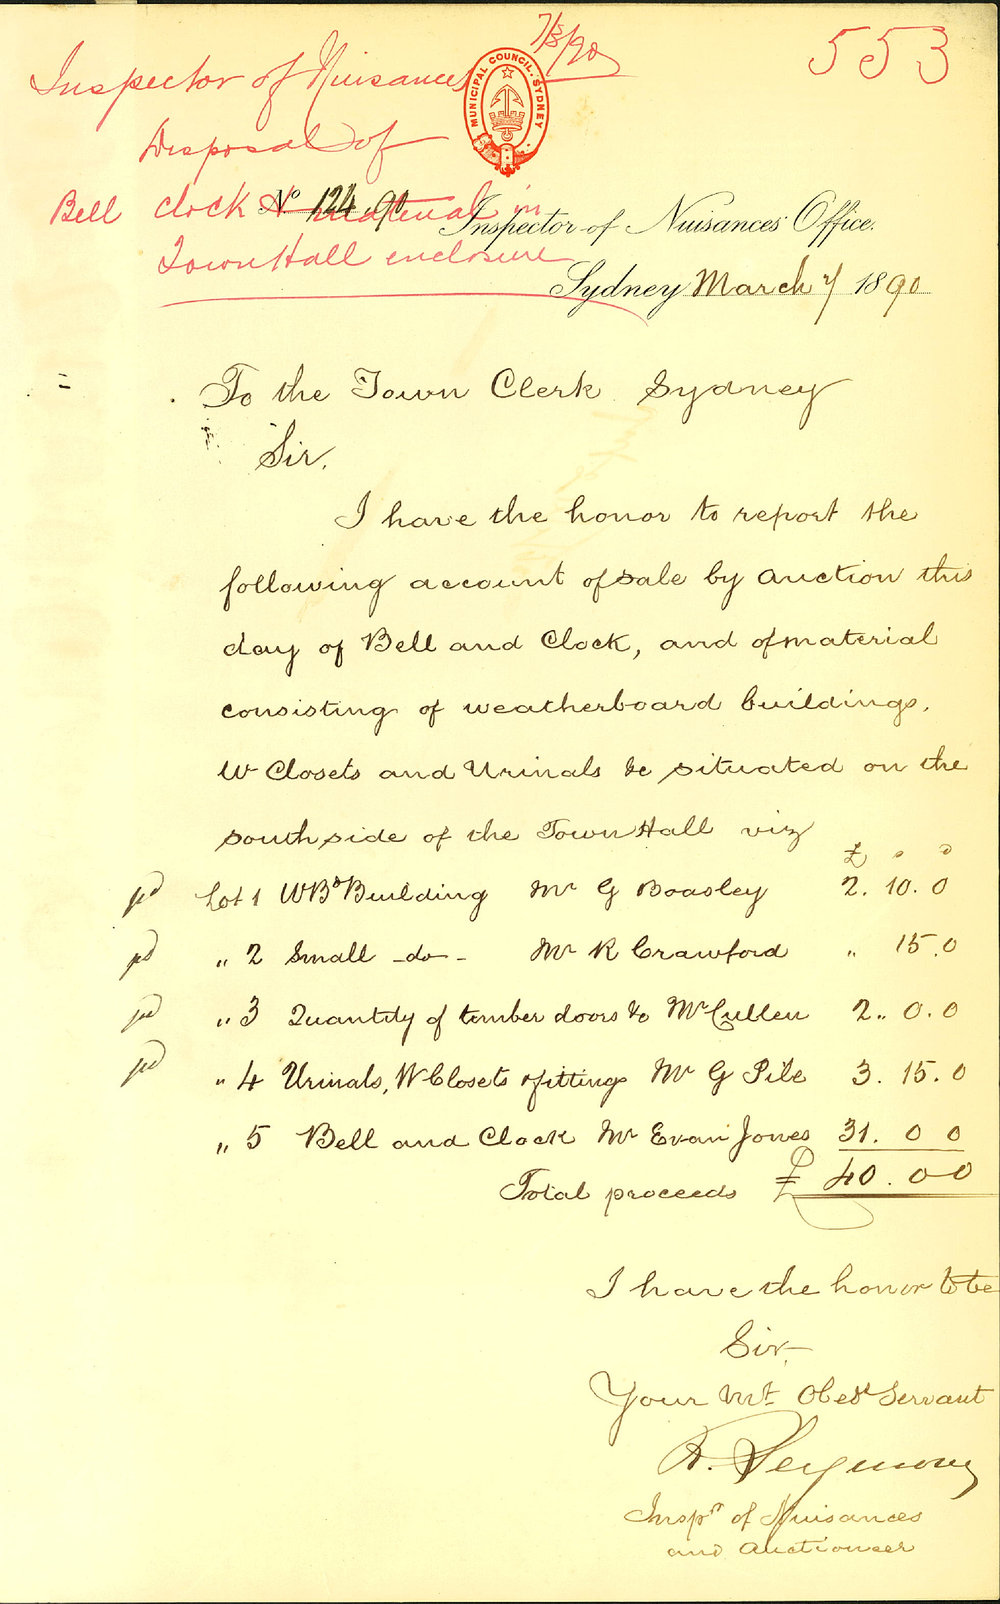 7/3/90
553
Inspector of Nuisances
MUNICIPAL COUNCIL. SYDNEY
Disposal of
Bell clock & material in
No 124.90
Inspector of Nuisances' Office.
Town Hall enclosure
Sydney March 7 1890
To the Town Clerk Sydney
Sir,
I have the honor to report the
following account of sale by auction this
day of Bell and Clock, and of material
consisting of weatherboard buildings,
W Closets and Urinals &c situated on the
south side of the Town Hall viz
£ s d
pd Lot 1 WBd Building Mr G Boasley 2. 10. 0
pd " 2 Small -do- Mr R Crawford " 15. 0
pd " 3 Quantity of timber doors &c McCullen 2 " 0. 0
pd " 4 Urinals, W Closets & fittings Mr G Pile 3. 15. 0
" 5 Bell and Clock Mr Evan Jones 31. 0 0
Total proceeds £ 40. 0 0
I have the honor to be
Sir,
Your Mt Obedt Servant
R. Seymour
Inspr of Nuisances
and Auctioneer